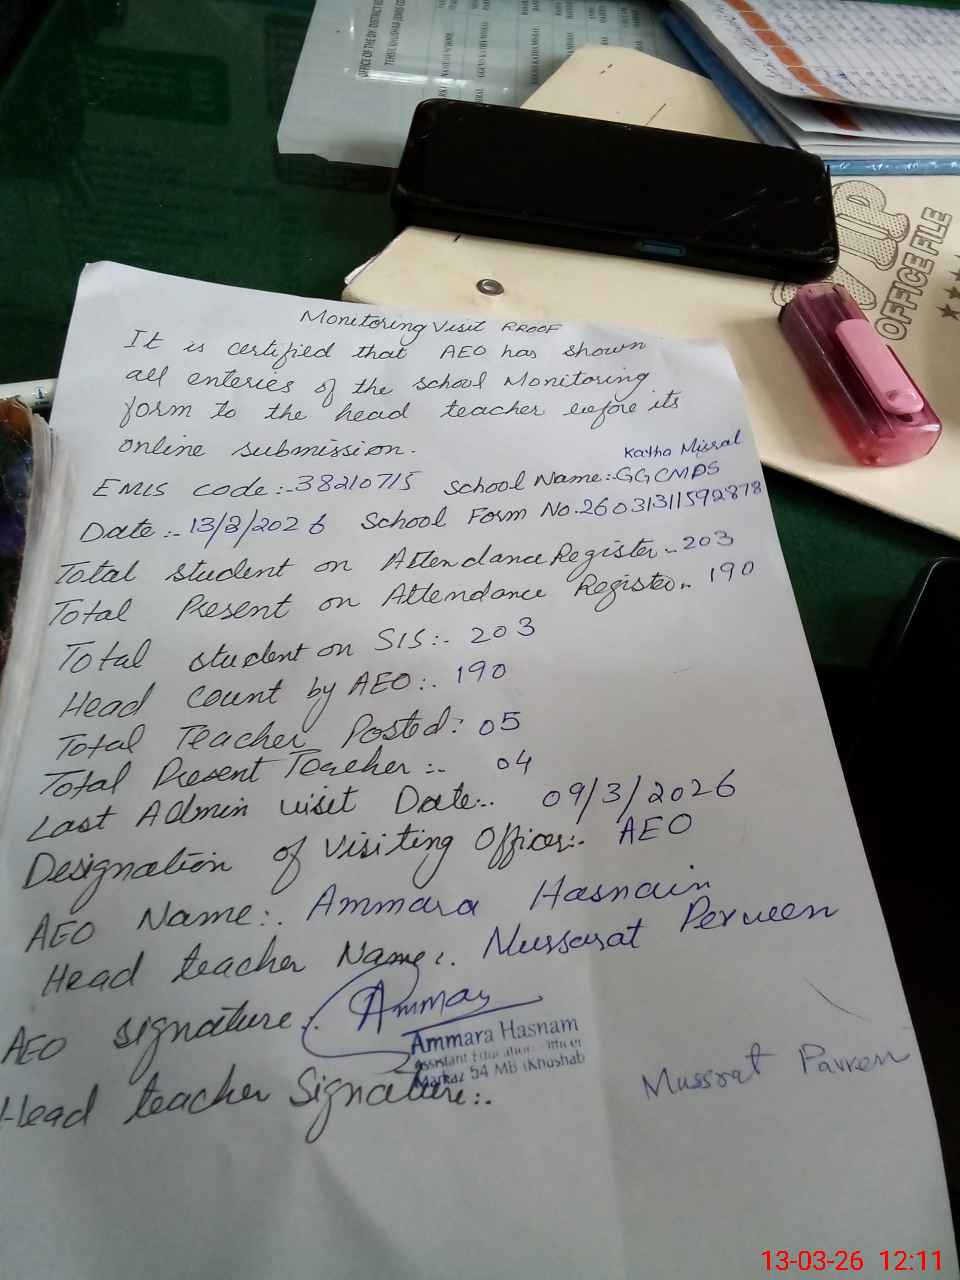 OFFICE OF THE DY. DISTRICT
VIP
OFFICE FILE
Monitoring Visit PROOF
It is certified that AEO has shown
all enteries of the school Monitoring
form to the head teacher before its
online submission.
EMIS code:-38210715 School Name:GGCMPS Katha Misral
Date:- 13/3/2026 School Form No.26031311592878
Total student on Attendance Register.-203
Total Present on Attendance Register.. 190
Total student on SIS:- 203
Head count by AEO:. 190
Total Teacher Posted: 05
Total Present Teacher:- 04
Last Admin visit Date:. 09/3/2026
Designation of Visiting Officer:. AEO
AEO Name:. Ammara Hasnain
Head teacher Name:. Mussarat Perveen
AEO signature:. Ammar
Ammara Hasnam
Assistant Education Officer
Markaz 54 MB (Khushab
Head teacher Signature:. Mussrat Parren
13-03-26 12:11